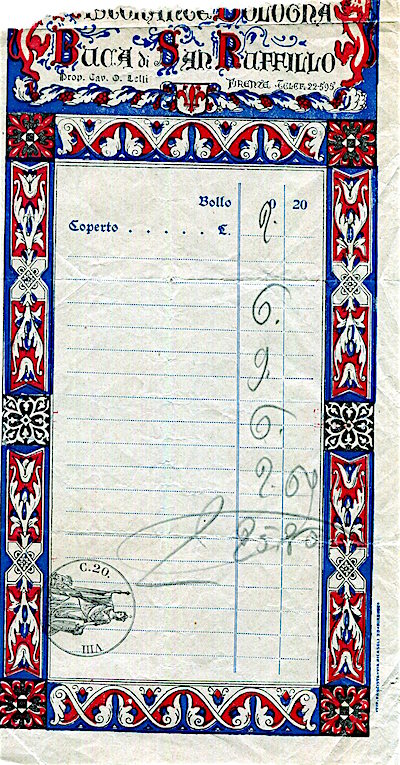 RISTORANTE BOLOGNA
BUCA di SAN RUFFILLO
Prop. Cav. O. Lelli
FIRENZE - TELEF. 22-595
Bollo 20
Coperto . . . . . . £. 2.
6.
9.
6.
2.
C. 20.
VIII